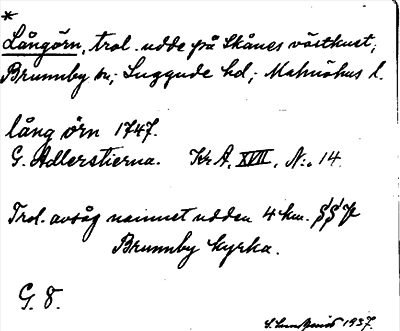 *
Långörn, trol. udde på Skånes västkust;
Brunnby sn; Luggude hd; Malmöhus l.
lång örn 1747.
G. Adlerstierna. KrA, XVII, N:o 14.
Trol. avsåg namnet udden 4 km.
Brunnby kyrka.
G. 8.
1937.